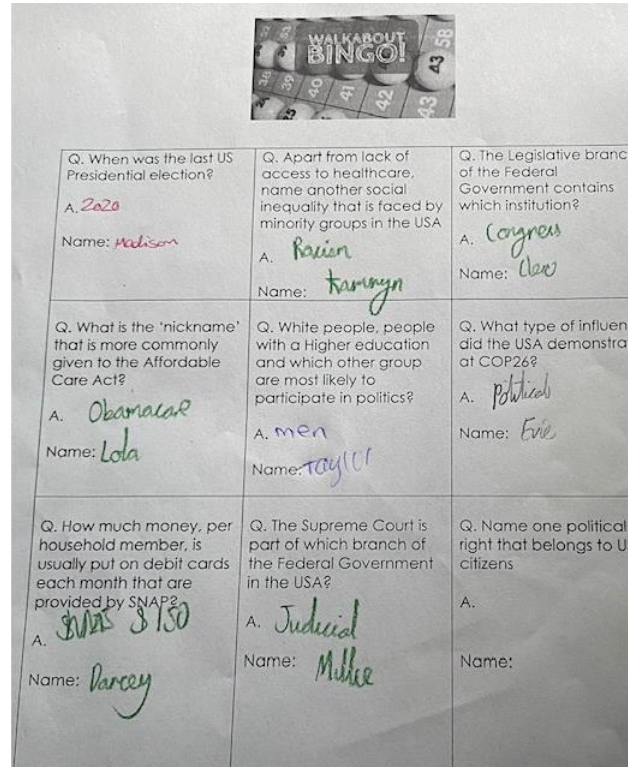 WALKABOUT
BINGO!
Q. When was the last US
Presidential election?
A. 2020
Name: Madison
Q. Apart from lack of
access to healthcare,
name another social
inequality that is faced by
minority groups in the USA
A.
Name:
Q. The Legislative branc
of the Federal
Government contains
which institution?
A. Congress
Name:
Q. What is the 'nickname'
that is more commonly
given to the Affordable
Care Act?
A.
Name: Lola
Q. White people, people
with a Higher education
and which other group
are most likely to
participate in politics?
A. men
Name:
Q. What type of influen
did the USA demonstra
at COP26?
A. Political
Name: Evie
Q. How much money, per
household member, is
usually put on debit cards
each month that are
provided by SNAP?
A. $150
Name: Darcey
Q. The Supreme Court is
part of which branch of
the Federal Government
in the USA?
A. Judicial
Name: Millie
Q. Name one political
right that belongs to U
citizens
A.
Name: